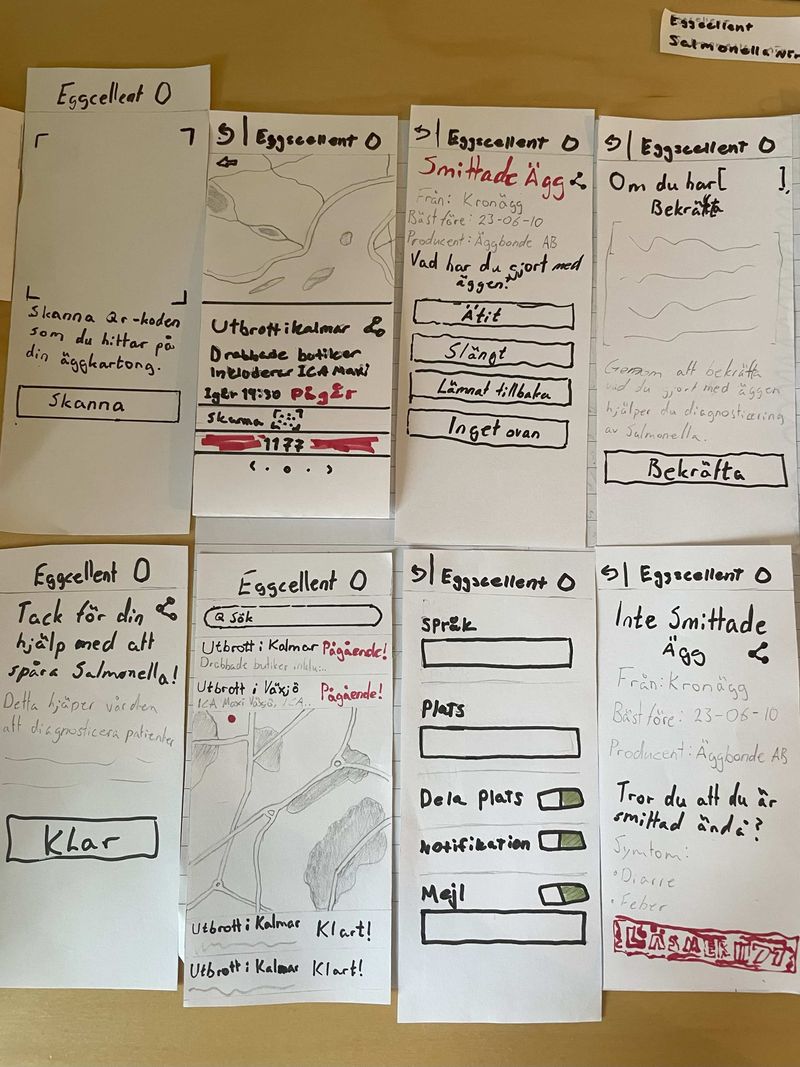 Eggcellent
Salmonella
Eggcellent
Skanna Qr-koden
som du hittar på
din äggkartong.
Skanna
Eggscellent
Utbrott i kalmar
Drabbade butiker
Inkloderer ICA Maxi
Igår 19:30 Pågår
Skanna
1177
Eggscellent
Smittade Ägg
Från: Kronägg
Bäst före: 23-06-10
Producent: Äggbonde AB
Vad har du gjort med
äggen?
Ätit
Slängt
Lämnat tillbaka
Inget ovan
Eggscellent
Om du har [ ],
Bekräfta
Genom att bekräfta
vad du gjort med äggen
hjälper du diagnosticering
av Salmonella.
Bekräfta
Eggcellent
Tack för din
hjälp med att
spåra Salmonella!
Detta hjälper vården
att diagnosticera patienter
Klar
Eggcellent
Sök
Utbrott i Kalmar Pågående!
Drabbade butiker inklu...
Utbrott i Växjö Pågående!
ICA Maxi Växjö, ICA...
Utbrott i Kalmar Klart!
Utbrott i Kalmar Klart!
Eggscellent
Språk
Plats
Dela plats
Notifikation
Mejl
Eggscellent
Inte Smittade
Ägg
Från: Kronägg
Bäst före: 23-06-10
Producent: Äggbonde AB
Tror du att du är
smittad ändå?
Symtom:
• Diarre
• Feber
LÄS MER 1177